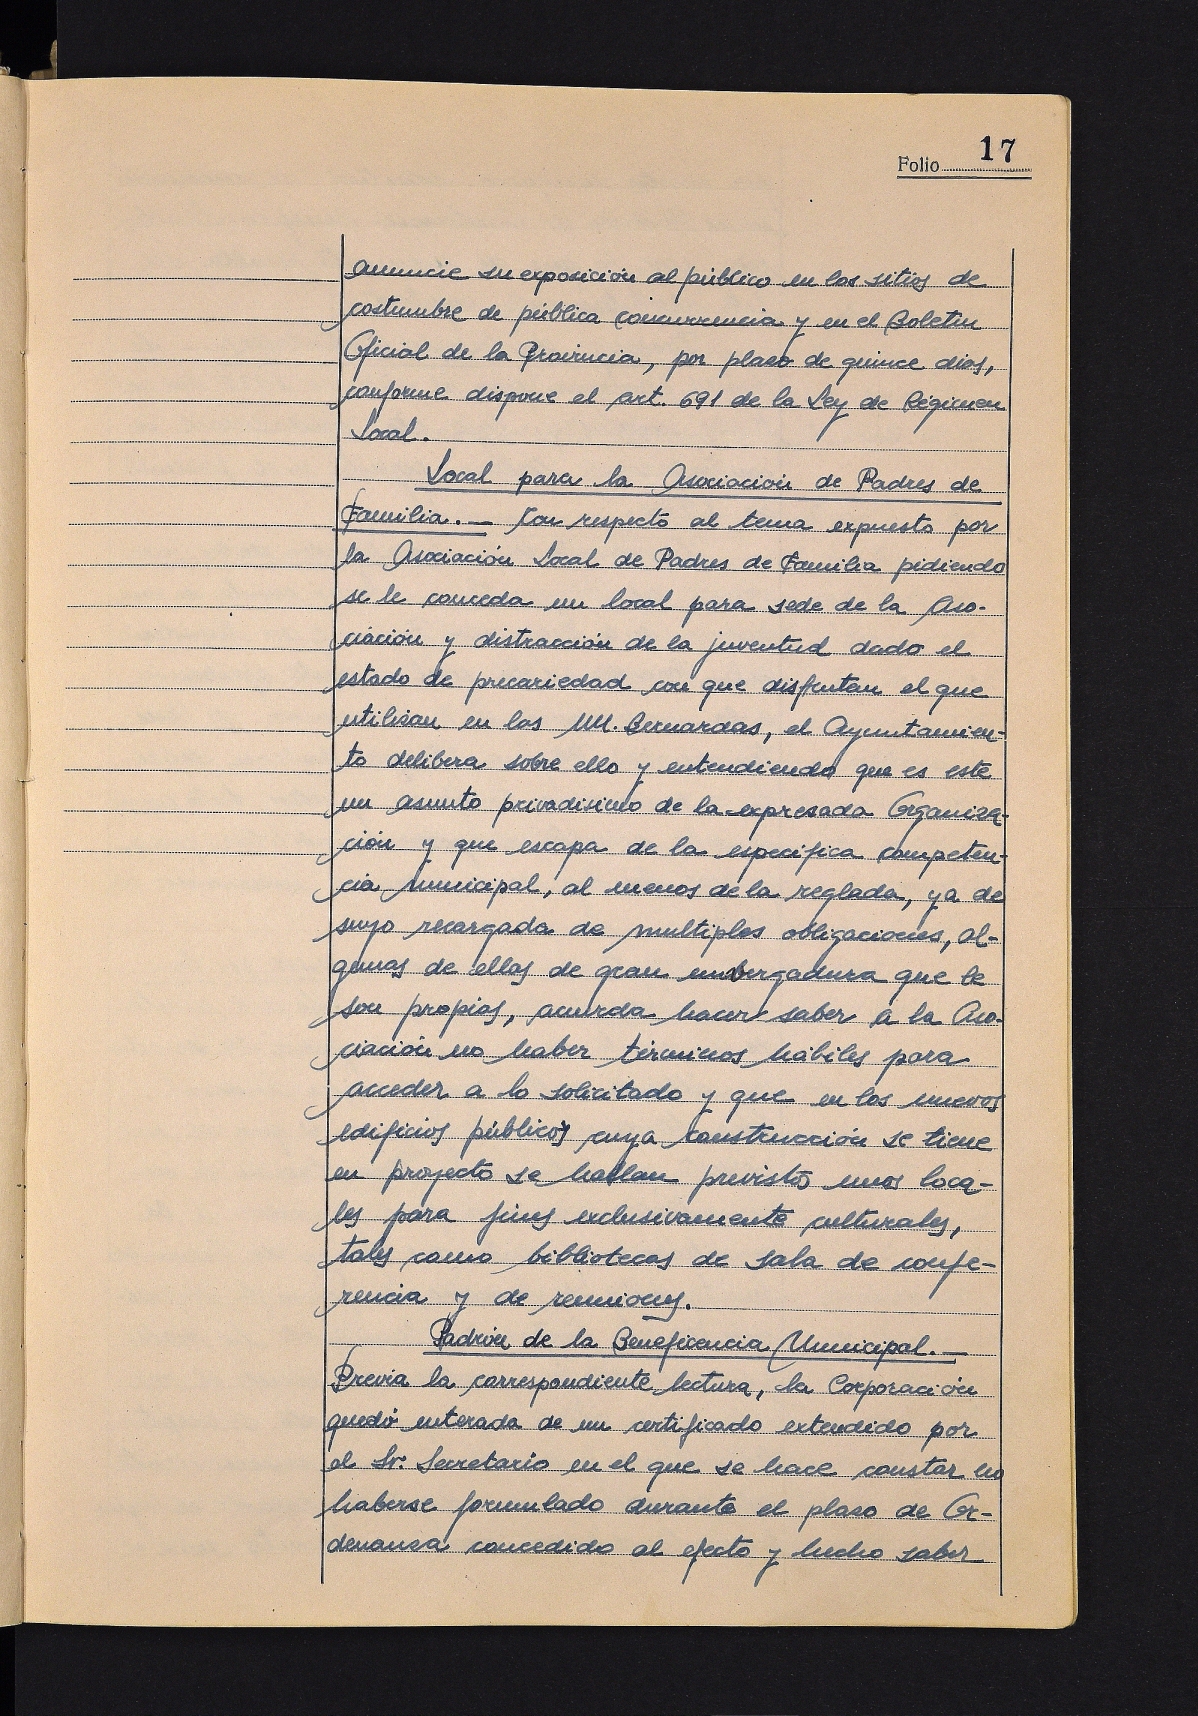 Folio 17
anuncie su exposición al público en los sitios de
costumbre de pública concurrencia y en el Boletín
Oficial de la Provincia, por plazo de quince días,
conforme dispone el art. 691 de la Ley de Régimen
Local.
Local para la Asociación de Padres de
Familia.— Con respecto al tema expuesto por
la Asociación Local de Padres de Familia pidiendo
se le conceda un local para sede de la Aso-
ciación y distracción de la juventud dado el
estado de precariedad con que disfrutan el que
utilizan en las MM. Bernardas, el Ayuntamien-
to delibera sobre ello y entendiendo que es este
un asunto privadisimo de la expresada Organiza-
ción y que escapa de la especifica competen-
cia municipal, al menos de la reglada, ya de
suyo recargada de multiples obligaciones, al-
gunas de ellas de gran embergadura que le
son propias, acuerda hacer saber a la Aso-
ciación no haber términos hábiles para
acceder a lo solicitado y que en los nuevos
edificios públicos cuya construcción se tiene
en proyecto se hallan previsto unos loca-
les para fines exclusivamente culturales,
tales como bibliotecas de sala de confe-
rencia y de reuniones.
Padrón de la Beneficencia Municipal.—
Previa la correspondiente lectura, la Corporación
quedó enterada de un certificado extendido por
el Sr. Secretario en el que se hace constar no
haberse formulado durante el plazo de Or-
denanza concedido al efecto y hecho saber